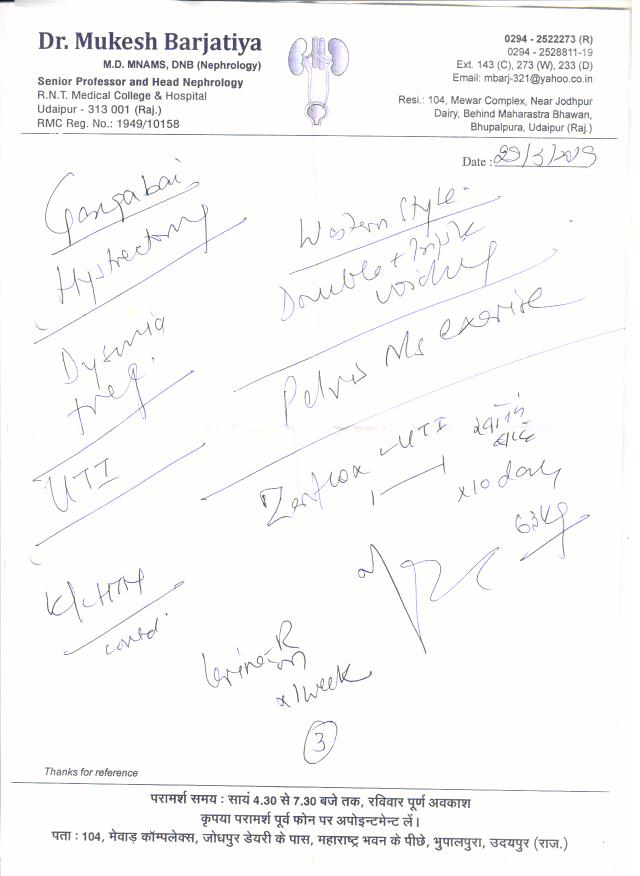 Dr. Mukesh Barjatiya
M.D. MNAMS, DNB (Nephrology)
Senior Professor and Head Nephrology
R.N.T. Medical College & Hospital
Udaipur - 313 001 (Raj.)
RMC Reg. No.: 1949/10158
0294 - 2522273 (R)
0294 - 2528811-19
Ext. 143 (C), 273 (W), 233 (D)
Email: mbarj-321@yahoo.co.in
Resi.: 104, Mewar Complex, Near Jodhpur
Dairy, Behind Maharastra Bhawan,
Bhupalpura, Udaipur (Raj.)
Date :
Gangabai
Hystrectomy
Dysuria
freq.
UTI
K/C HTN
contd.
Western Style
Double + Triple
voiding
Pelvic Ms exercise
UTI
x 10 days
63 Kg
Urine R
x 1 week
3
Thanks for reference
परामर्श समय : सायं 4.30 से 7.30 बजे तक, रविवार पूर्ण अवकाश
कृपया परामर्श पूर्व फोन पर अपोइन्टमेन्ट लें।
पता : 104, मेवाड़ कॉम्पलेक्स, जोधपुर डेयरी के पास, महाराष्ट्र भवन के पीछे, भुपालपुरा, उदयपुर (राज.)